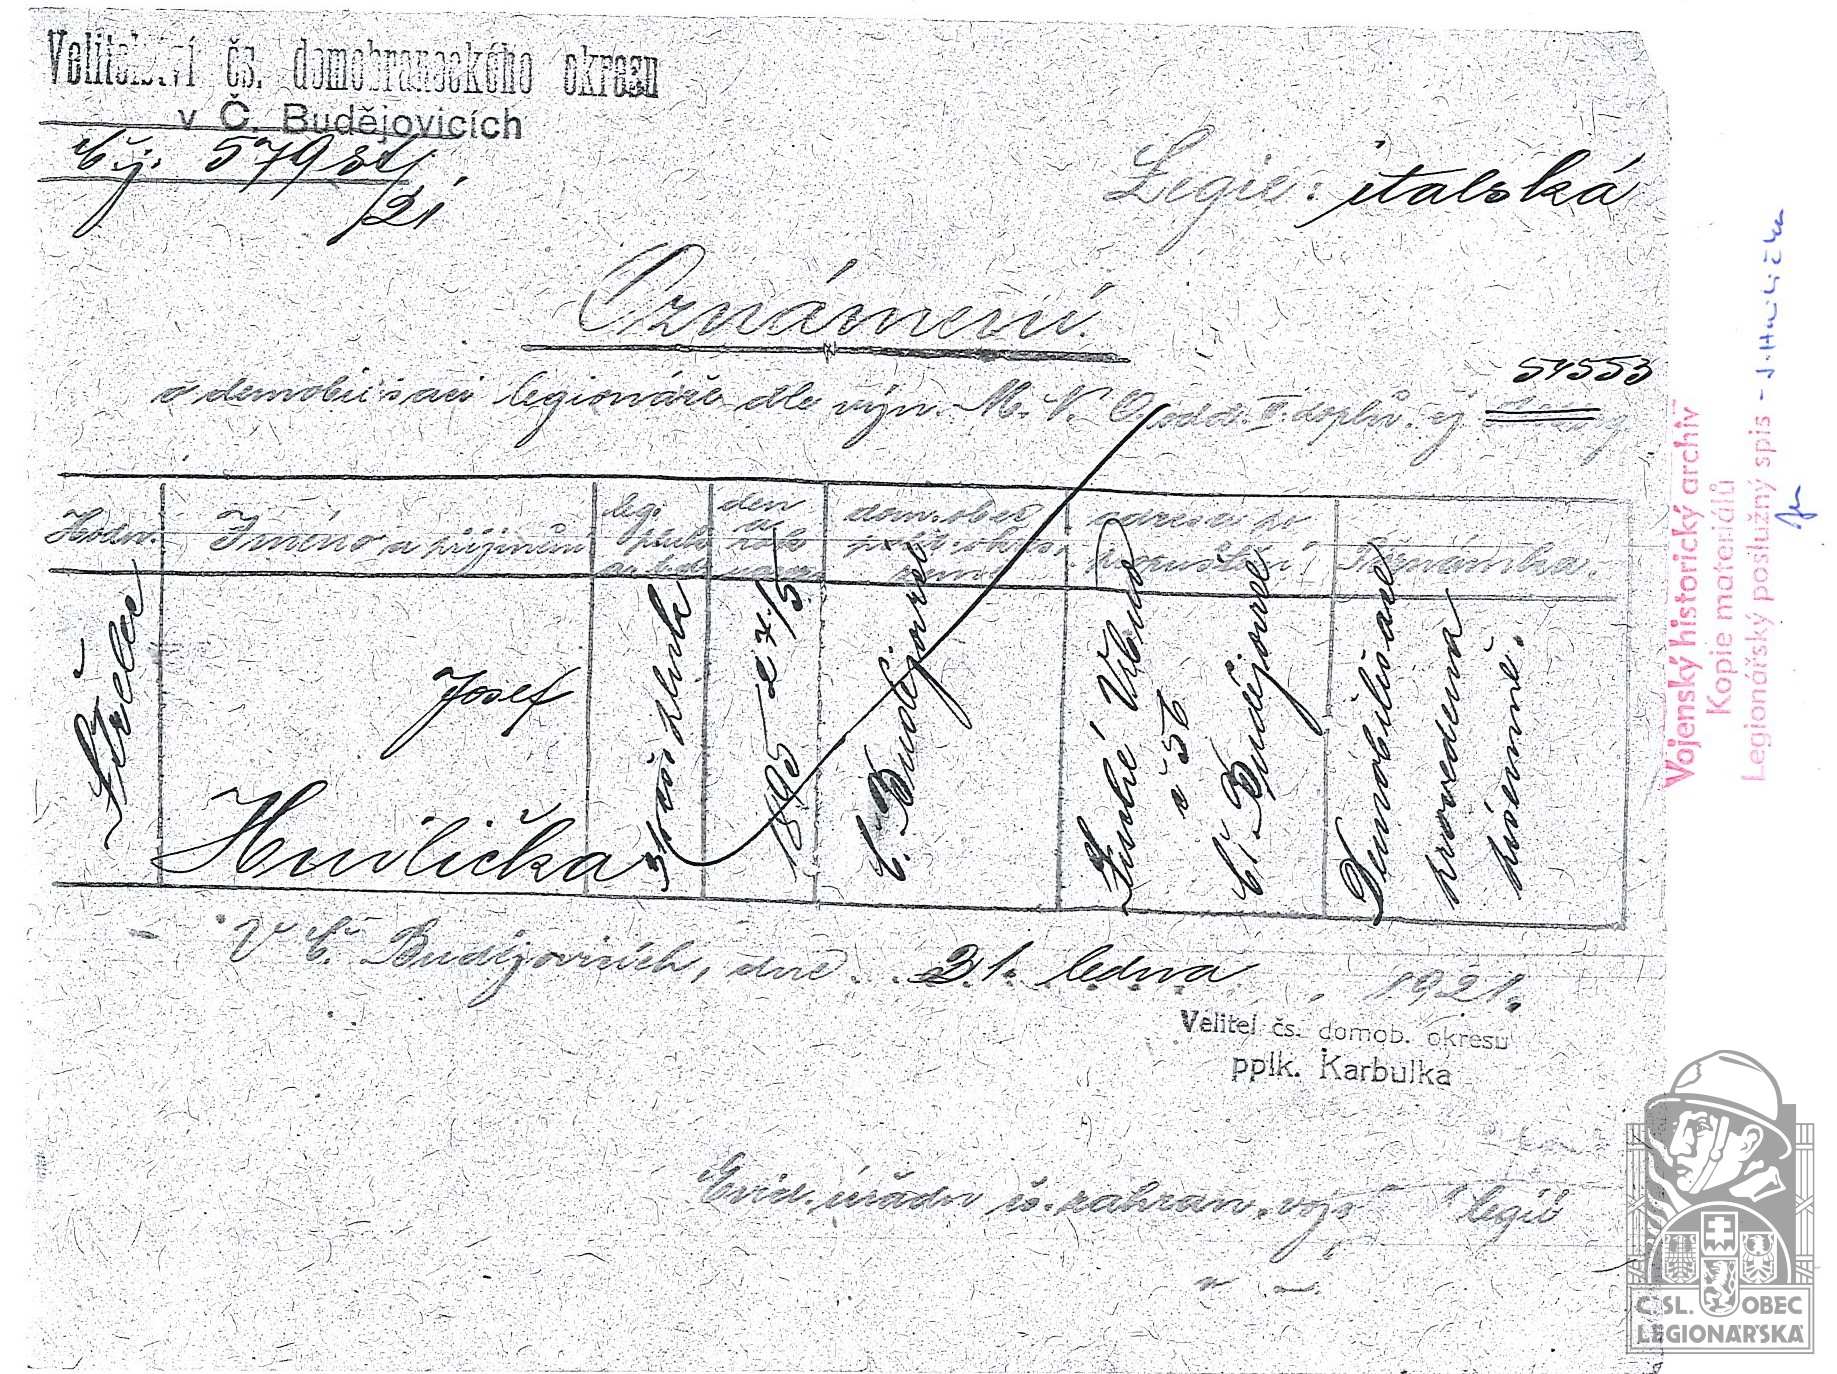 Velitelství čs. domobraneckého okresu
v Č. Budějovicích
Čj. 579
/21
Legie: italská
Oznámení
54553
o demobilisaci legionáře dle výn. M. N. O. odd. II. doplň. čj.
Hodn.
Jméno a příjmení
leg.
pluk
den
a
rok
dom. obec
adresa po
propuštění
Poznámka.
Střelec
Josef
Hnilička
31 čs. pluk
1895 27/5
Č. Budějovice
č 56
Č. Budějovice
Demobilisace
provedena
písemně.
V Č. Budějovicích, dne 31. ledna 1921.
Velitel čs. domob. okresu
pplk. Karbulka
Evid. úřadu čs. zahran. vojs legií
Vojenský historický archiv
Kopie materiálů
Legionářský poslužný spis - J. Hnilička
Č.SL. OBEC
LEGIONÁŘSKÁ